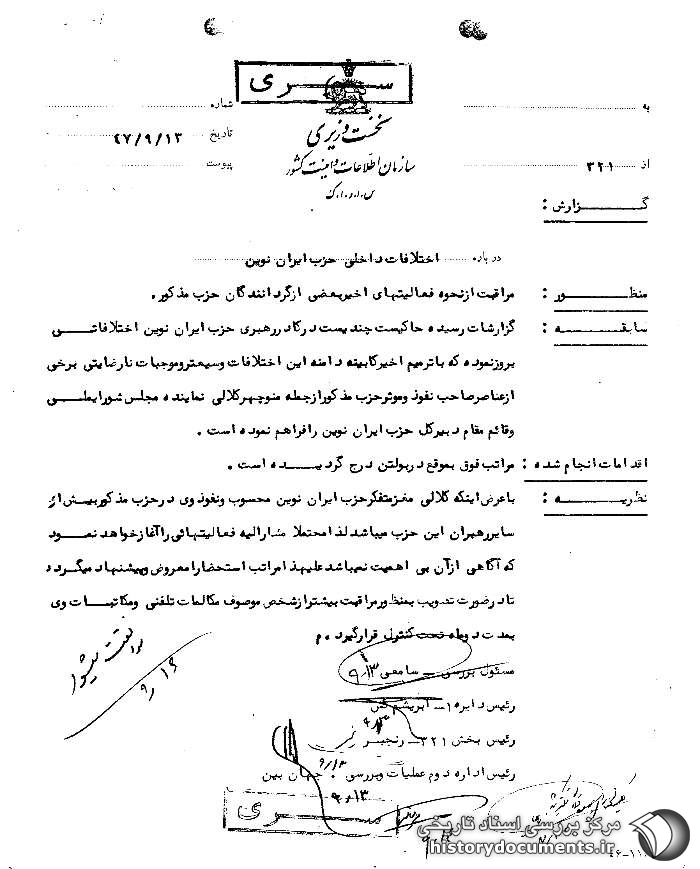 ســری
به
شماره
نخست وزیری
تاریخ ۴۷/۹/۱۳
سازمان اطلاعات و امنیت کشور
از ۳۲۱
پیوست
س.ا.و.ا.ک
گــــزارش :
درباره اختلافات داخلی حزب ایران نوین
منظــــور : مراقبت ازنحوه فعالیتهای اخیربعضی ازگردانندگان حزب مذکور.
سابقــــه : گزارشات رسیده حاکیست چندیست درکادررهبری حزب ایران نوین اختلافاتـــی
بروزنموده که باترمیم اخیرکابینه دامنه این اختلافات وسیعتروموجبات نارضایتی برخی
ازعناصرصاحب نفوذ وموثرحزب مذکورازجمله منوچهرکلالی نماینده مجلس شورایملـــی
وقائم مقام دبیرکل حزب ایران نوین رافراهم نموده است .
اقدامات انجام شده : مراتب فوق بموقع دربولتن درج گردیــــده است .
نظریــــه : باعرض اینکه کلالی مغزمتفکرحزب ایران نوین محسوب ونفوذ وی درحزب مذکوربیش از
سایررهبران این حزب میباشد لذا محتملا مشارالیه فعالیتهائی راآغازخواهد نمــود
که آگاهی ازآن بی اهمیت نمیباشد علیهذا مراتب استحضارا معروض وپیشنهاد میگردد
تادرصورت تصویب بمنظورمراقبت بیشترازشخص موصوف مکالمات تلفنی ومکاتبـــات وی
بمدت دوماه تحت کنترل قرارگیرد. م
مسئول بررسی ـ سامعی ۹/۱۳
رئیس دایره ۱ـ ابریشم چی
رئیس بخش ۳۲۱ـ رنجبر
رئیس اداره دوم عملیات وبررسی . جهان بین
۹/۱۳
۹/۱۶
ســری
مرکز بررسی اسناد تاریخی
historydocuments.ir